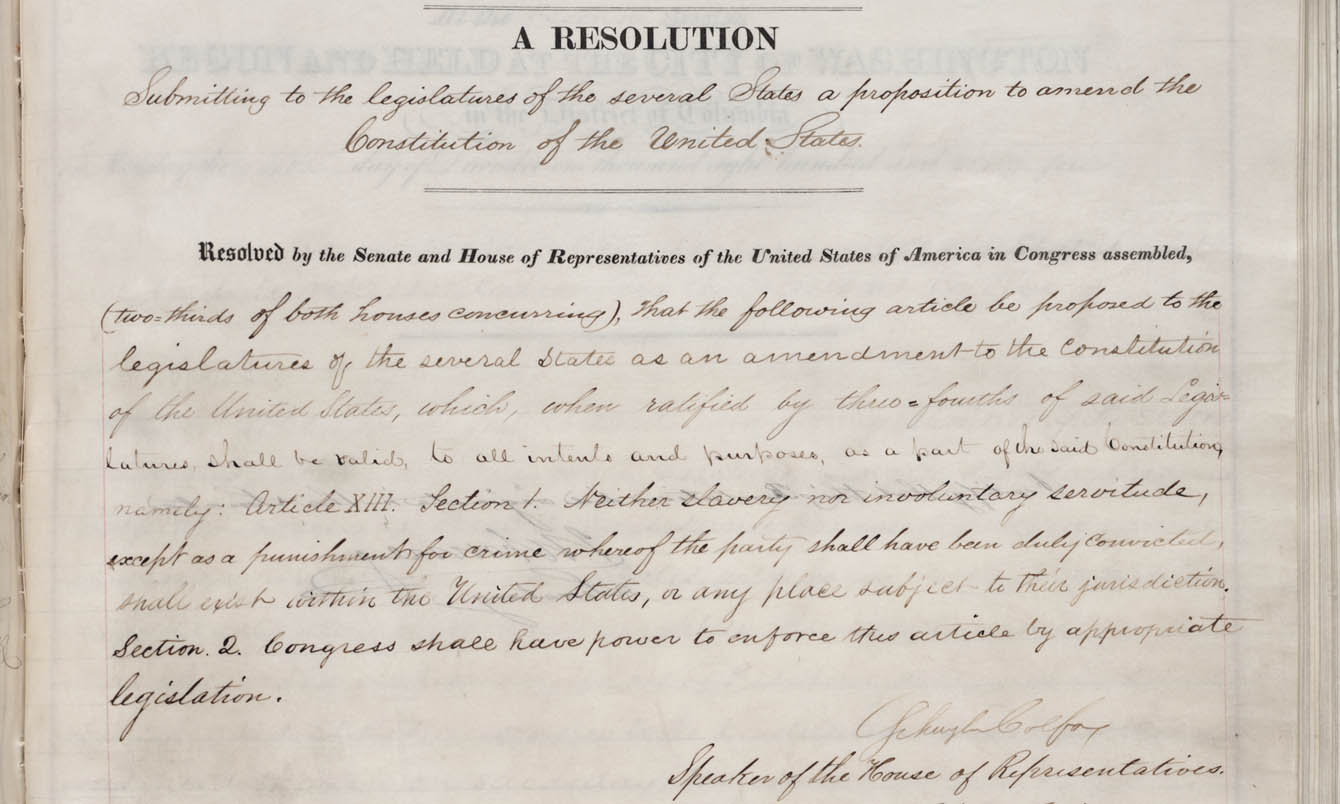 A RESOLUTION
Submitting to the legislatures of the several States a proposition to amend the
Constitution of the United States.
Resolved by the Senate and House of Representatives of the United States of America in Congress assembled,
(two=thirds of both houses concurring), that the following article be proposed to the
legislatures of the several States as an amendment to the Constitution
of the United States, which, when ratified by three=fourths of said Legis=
latures, shall be valid, to all intents and purposes, as a part of the said Constitution,
namely: Article XIII. Section 1. Neither slavery nor involuntary servitude,
except as a punishment for crime whereof the party shall have been duly convicted,
shall exist within the United States, or any place subject to their jurisdiction.
Section. 2. Congress shall have power to enforce this article by appropriate
legislation.
Schuyler Colfax
Speaker of the House of Representatives.